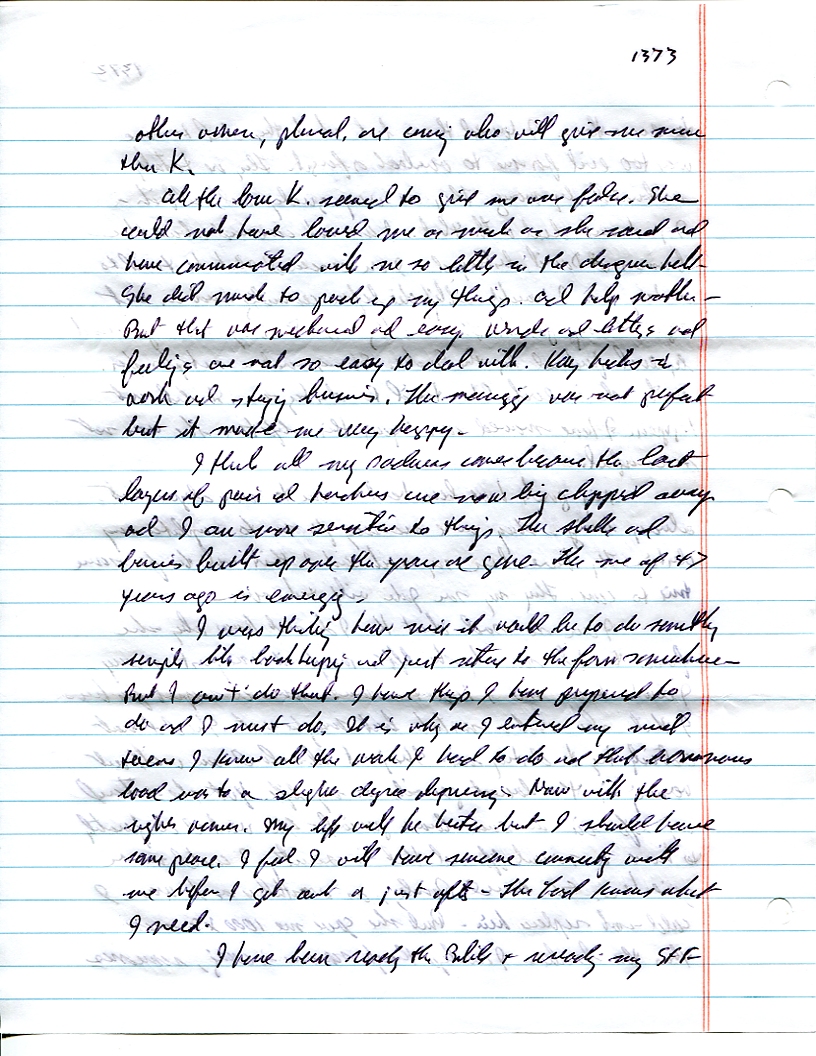 1373
other women, plural, are coming who will give me more
than K.
All the love K. seemed to give me was false. She
could not have loved me as much as she said and
have communicated with me so little in the
She did much to pack up my things. and help mother -
But that was mechanical and easy. words and letters and
feelings are not so easy to deal with. Kay hides in
work and staying busy. The marriage was not perfect
but it made me very happy -
I think all my sadness comes because the last
layers of pain and hardness are now being chipped away
and I am more sensitive to things. The shells and
barriers built up over the years are gone. The me of 47
years ago is emerging
I was thinking how nice it would be to do something
simple like bookkeeping and just retire to the farm somewhere -
But I can't do that. I have things I have prepared to
do and I must do. It is why as I entered my mid
teens I knew all the work I had to do and that enormous
load was to a slight degree depressing. Now with the
right women. my life will be better but I should have
some peace. I feel I will have someone connecting with
me before I get out or just after - The Lord knows what
I need.
I have been reading the Bible + rereading my